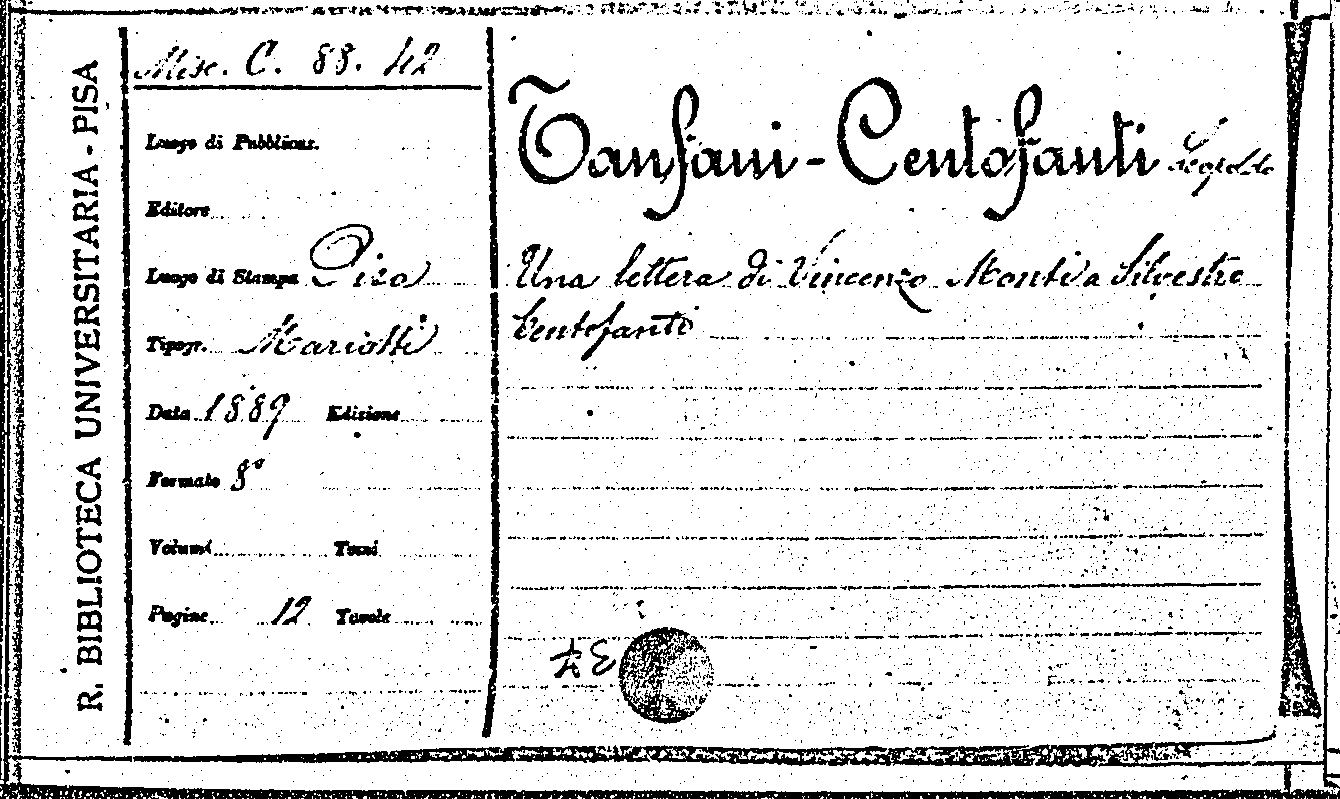 R. BIBLIOTECA UNIVERSITARIA - PISA
Misc. C. 88. 42
Luogo di Pubblicaz.
Editore
Luogo di Stampa Pisa
Tipogr. Mariotti
Data 1889 Edizione
Formato 8°
Volumi Tomi
Pagine 12 Tavole
Tanfani-Centofanti Leopoldo
Una lettera di Vincenzo Monti a Silvestro
Centofanti